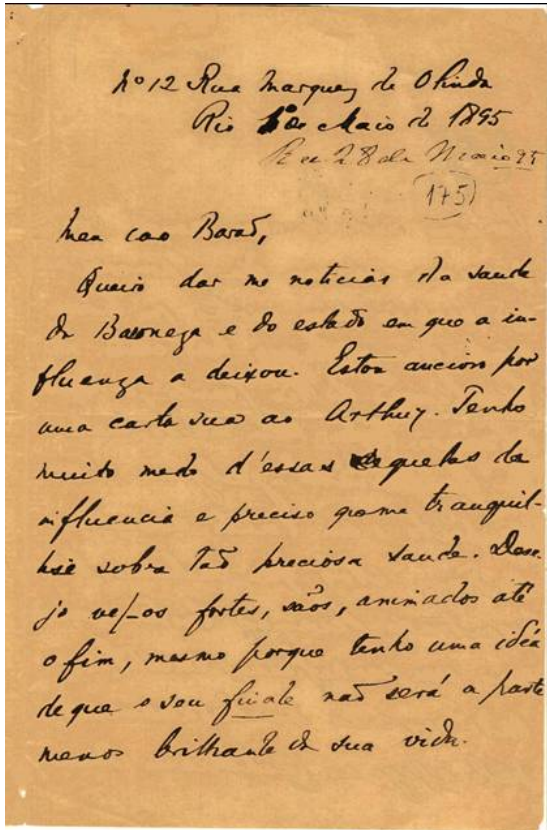 Nº 12 Rua Marquez de Olinda
Rio 1º de Maio de 1895
Rec 28 de Maio 95
(175)
Meu caro Barão,
Queira dar me noticias da saude
da Baroneza e do estado em que a in-
fluenza a deixou. Estou ancioso por
uma carta sua ao Arthur. Tenho
muito medo d'essas sequelas da
influencia e preciso que me tranquil-
lise sobre tão preciosa saude. Dese-
jo vel-os fortes, sãos, animados até
o fim, mesmo porque tenho uma idéa
de que o seu finale não será a parte
menos brilhante da sua vida.